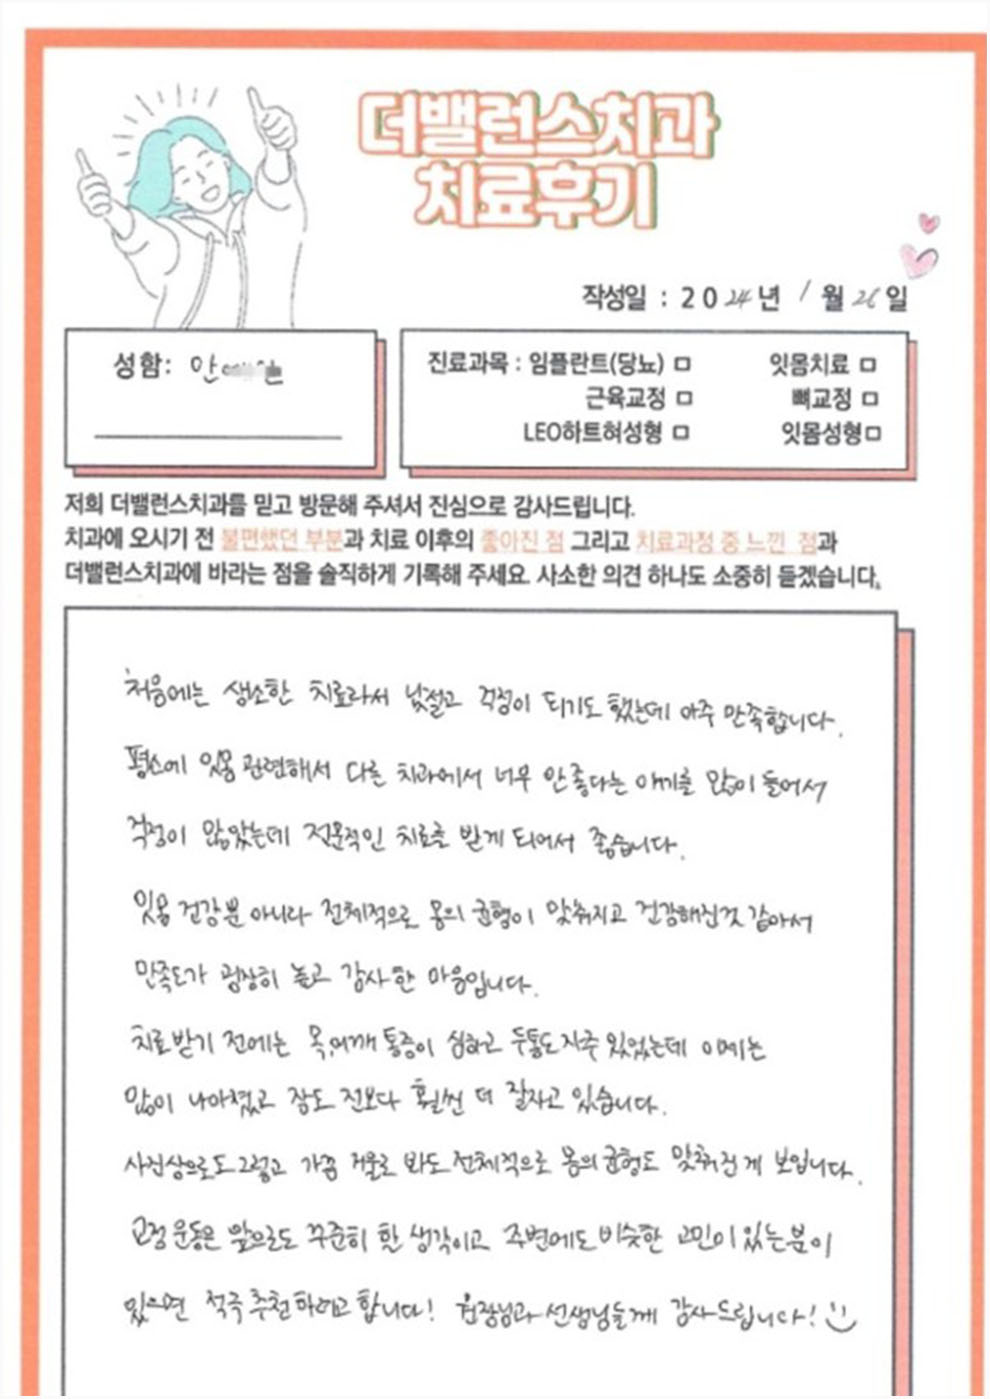 더밸런스치과
치료후기
작성일 : 2024년 1월 26일
성함: 안
진료과목 : 임플란트(당뇨) □ 잇몸치료 □
근육교정 □ 뼈교정 □
LEO하트혀성형 □ 잇몸성형□
저희 더밸런스치과를 믿고 방문해 주셔서 진심으로 감사드립니다.
치과에 오시기 전 불편했던 부분과 치료 이후의 좋아진 점 그리고 치료과정 중 느낀 점과
더밸런스치과에 바라는 점을 솔직하게 기록해 주세요. 사소한 의견 하나도 소중히 듣겠습니다.
처음에는 생소한 치료라서 낯설고 걱정이 되기도 했는데 아주 만족합니다.
평소에 잇몸 관련해서 다른 치과에서 너무 안좋다는 얘기를 많이 들어서
걱정이 많았는데 전문적인 치료를 받게 되어서 좋습니다.
잇몸 건강뿐 아니라 전체적으로 몸의 균형이 맞춰지고 건강해진것 같아서
만족도가 굉장히 높고 감사한 마음입니다.
치료받기 전에는 목,어깨 통증이 심하고 두통도 자주 있었는데 이제는
많이 나아졌고 잠도 전보다 훨씬 더 잘자고 있습니다.
사진상으로도 그렇고 가끔 거울로 봐도 전체적으로 몸의 균형도 맞춰진게 보입니다.
교정 운동은 앞으로도 꾸준히 할 생각이고 주변에도 비슷한 고민이 있는 분이
있으면 적극 추천하려고 합니다! 원장님과 선생님들께 감사드립니다!